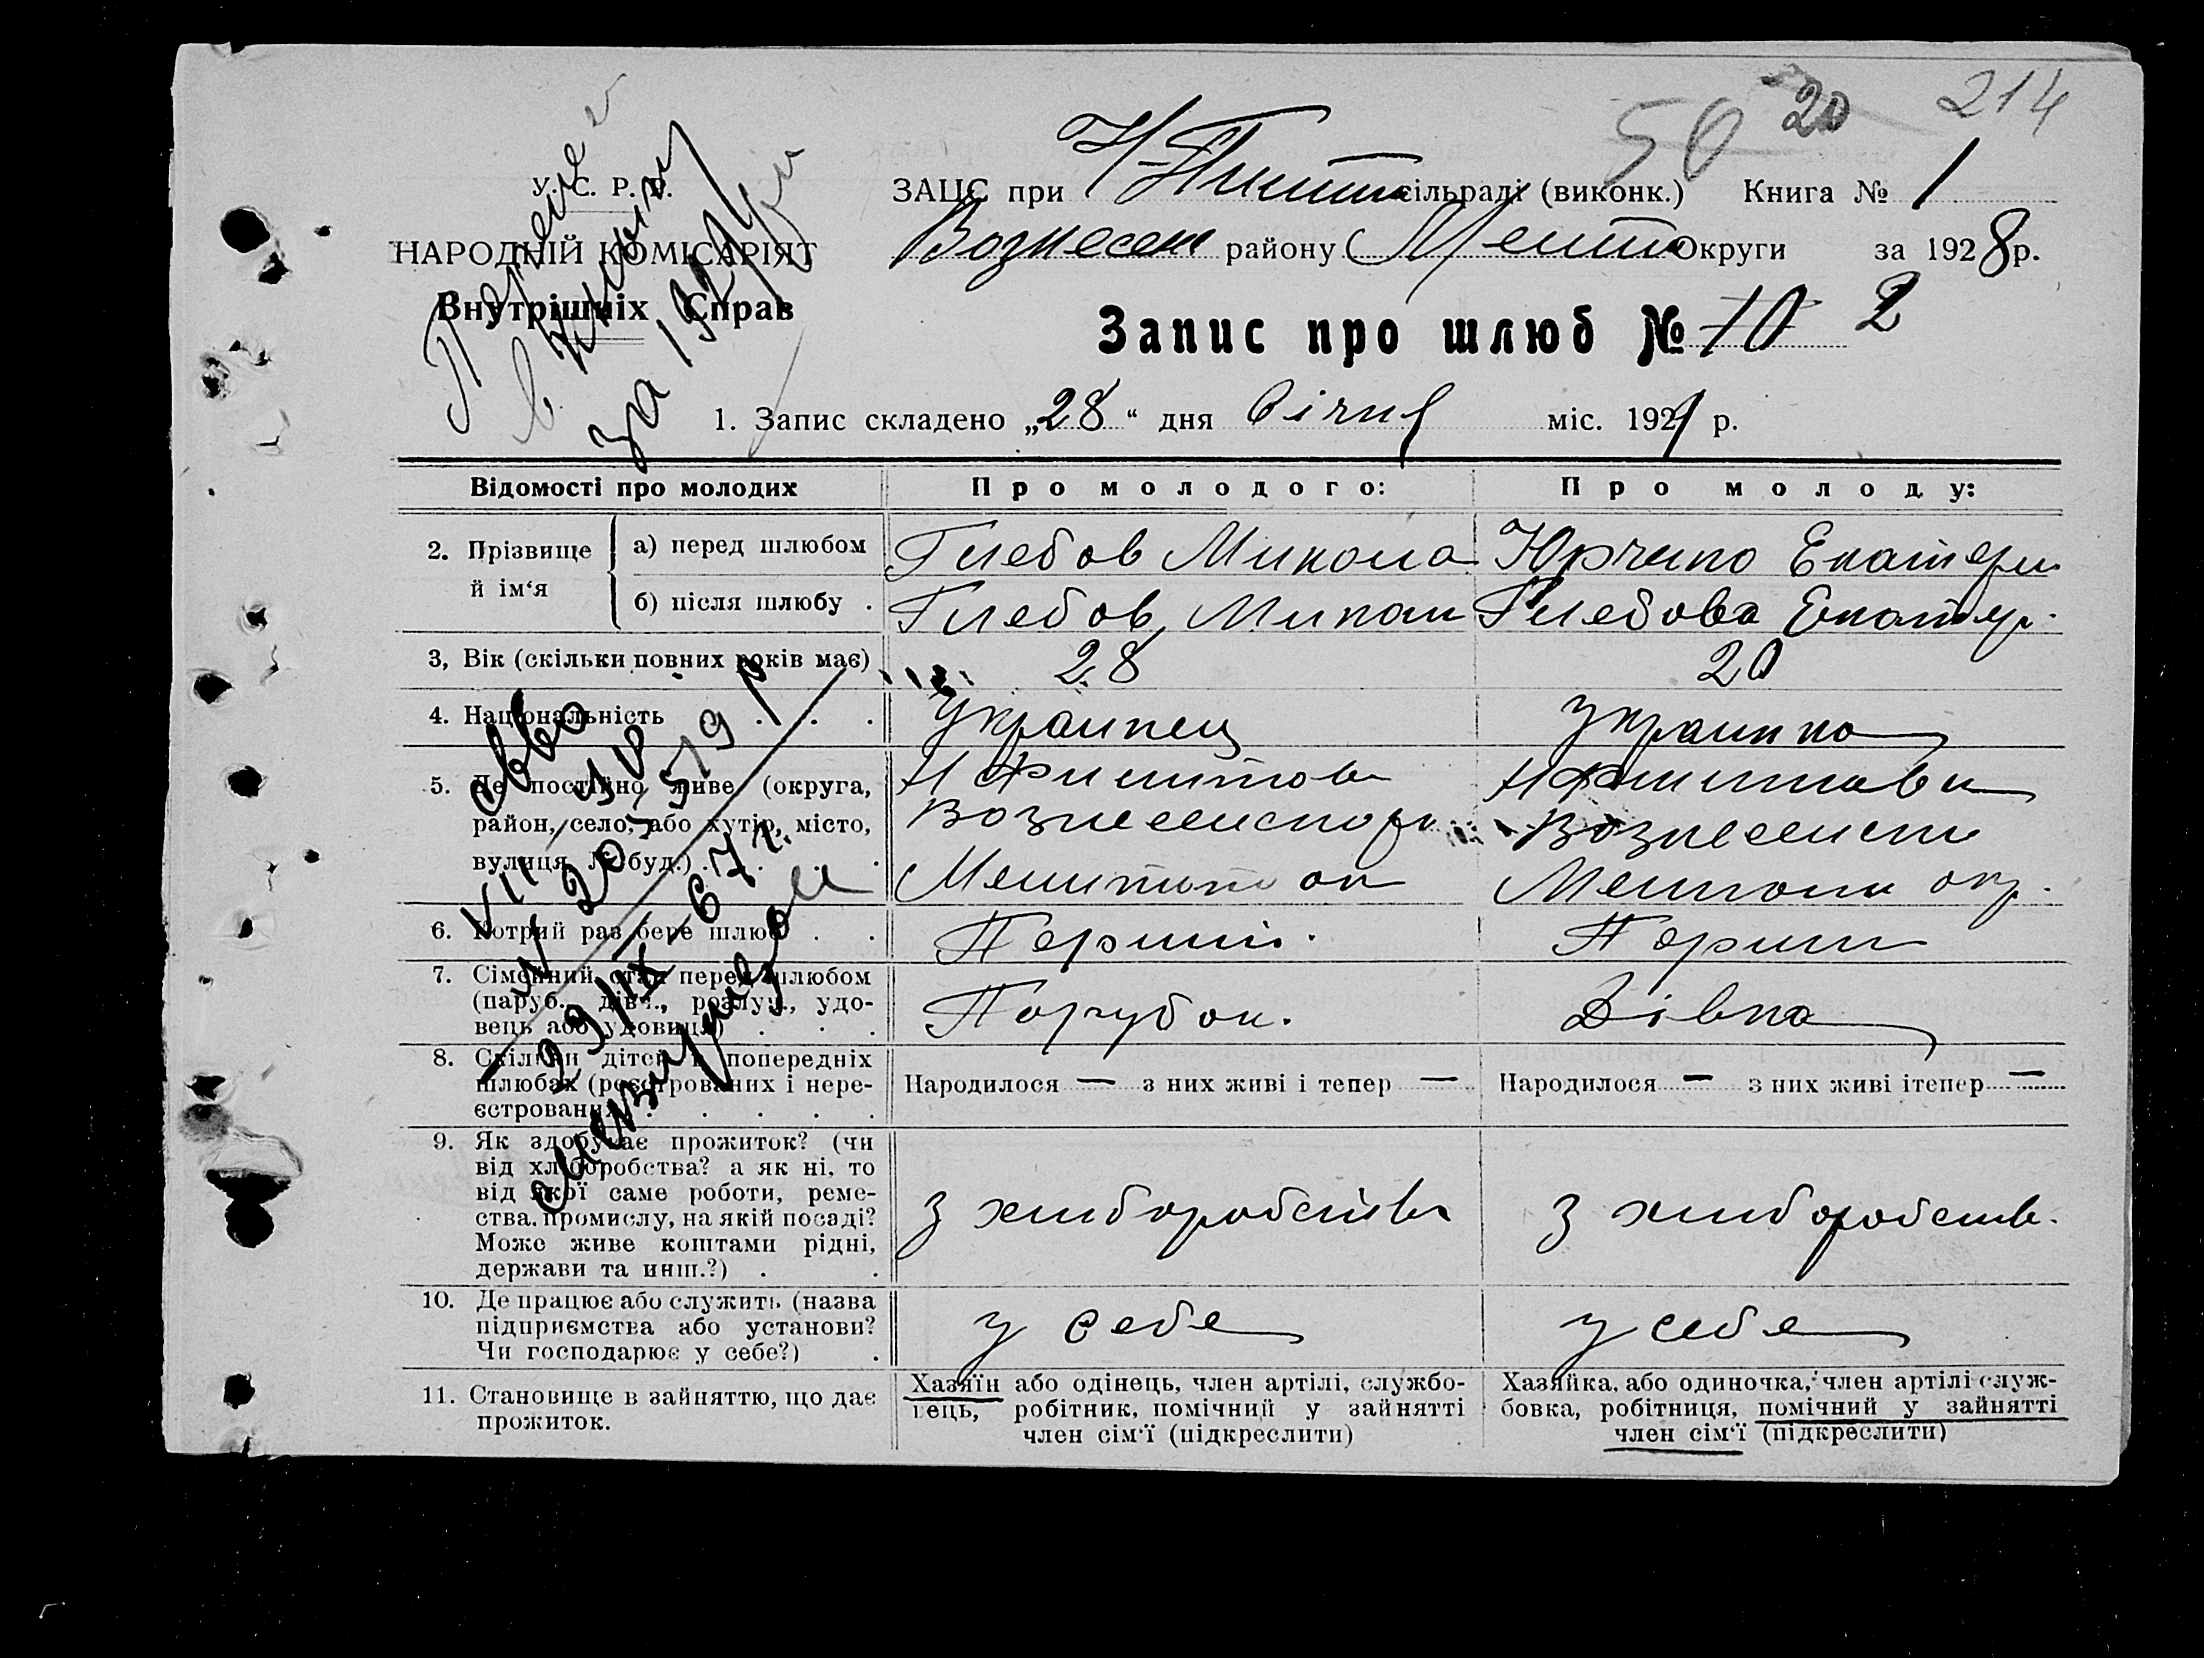 50 20 214
У. С. Р. Р.
НАРОДНІЙ КОМІСАРІЯТ
Внутрішніх Справ
ЗАЦС при сільраді (виконк.) Книга № 1
Вознесен району Меліт Округи за 1928 р.
Запис про шлюб № 10 2
1. Запис складено „28“ дня Січня міс. 1929 р.
за 1929
Відомості про молодих
Про молодого:
Про молоду:
2. Прізвище й ім‘я
а) перед шлюбом
Глебов Микола
Юрченко Екатери
б) після шлюбу .
Глебов Микол
Глебова Екатер.
3, Вік (скільки повних років має)
28
20
4. Національність . . .
Українец
Українка
5. Де постійно живе (округа,
район, село, або хутір, місто,
вулиця, № буд.) . . .
Вознесенського
Вознесенс
Мелитоп ок
Мелитоп окр.
6. Котрий раз бере шлюб . .
Перший.
Перши
7. Сімейний стан перед шлюбом
(паруб., дівч., розлуч., удо-
вець або удовиця) . . .
Парубок.
Дівка
8. Скільки дітей в попередніх
шлюбах (реєстрованих і нере-
єстрованих) . . . . .
Народилося — з них живі і тепер —
Народилося — з них живі ітепер —
9. Як здобуває прожиток? (чи
від хліборобства? а як ні, то
від якої саме роботи, реме-
ства, промислу, на якій посаді?
Може живе коштами рідні,
держави та инш.?) . .
З хліборобства
З хліборобств.
10. Де працює або служить (назва
підприємства або установи?
Чи господарює у себе?) .
у себе
у себе
11. Становище в зайняттю, що дає
прожиток.
Хазяїн або одінець, член артілі, службо-
вець, робітник, помічний у зайнятті
член сім‘ї (підкреслити)
Хазяйка, або одиночка, член артілі служ-
бовка, робітниця, помічний у зайнятті
член сім‘ї (підкреслити)